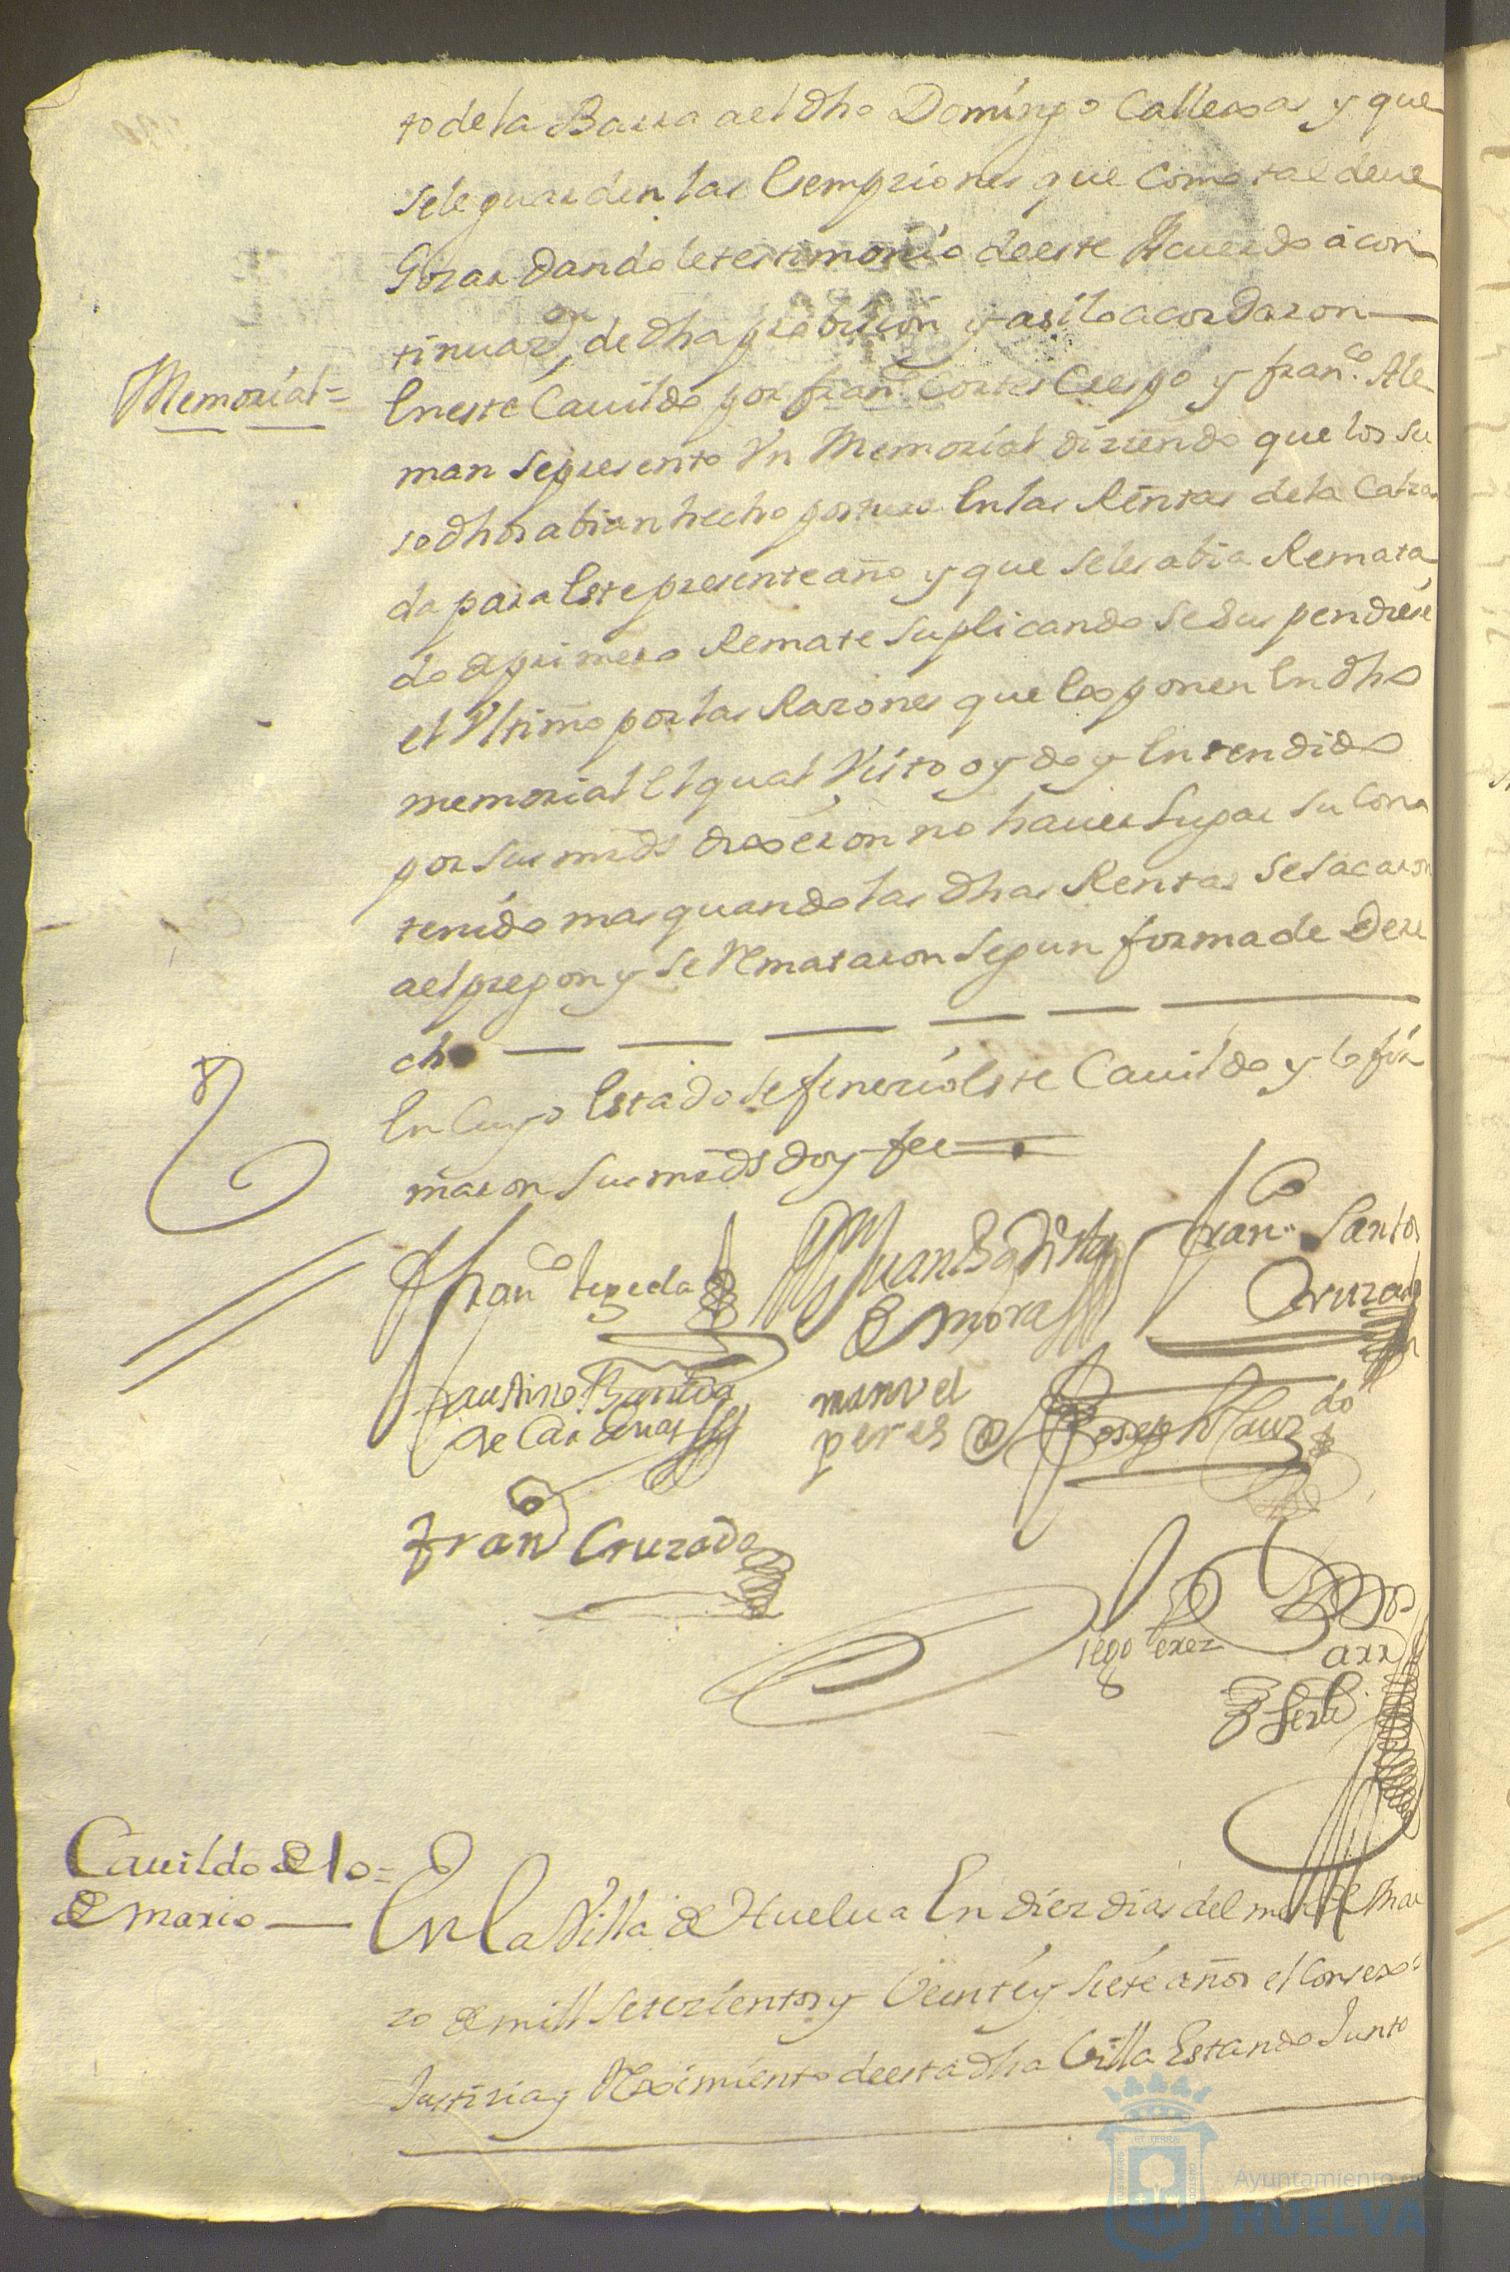 to de la Barra ael dho Domingo Callexas y que
se le guarden las Exempziones que como tal deve
Gozar dandole testimonio de este Acuerdo a con
tinuazon de dha petizion y asi lo acordaron
Memorial=
En este Cauildo por franco. Cortes Crespo y franco. Ale
man se presento Vn Memorial diziendo que los su
sodhos abian hecho postura En las Rentas de la Calza
da para Este presente año y que seles abia Remata
do de primero Remate suplicando se Suspendiese
el Vltimo por las Razones que Exponen En dho
memorial El qual Visto oydo y Entendido
por sus mrds dixeron no hauer Lugar su Con
tenido mas quando las dhas Rentas se sacaron
ael pregon y se Remataron segun forma de Dere
cho
En Cuyo Estado se fenezio Este Cauildo y lo fir
maron sus mrds doy fee
Franco tegeda
Juan Bautista
de mora
Franco. Santos
Cruzado
Faustino Bautista
de Cardenas
manuel
peres
Joseph
Franco Cruzado
Diego Perez
Cauildo de 10=
de Marzo
En La Villa de Huelua En diez dias del mes de Mar
zo de mill setezientos y Veinte y siete años el Consexo
Justizia y Reximiento de esta dha Villa Estando Junto
Ayuntamiento de
HUELVA